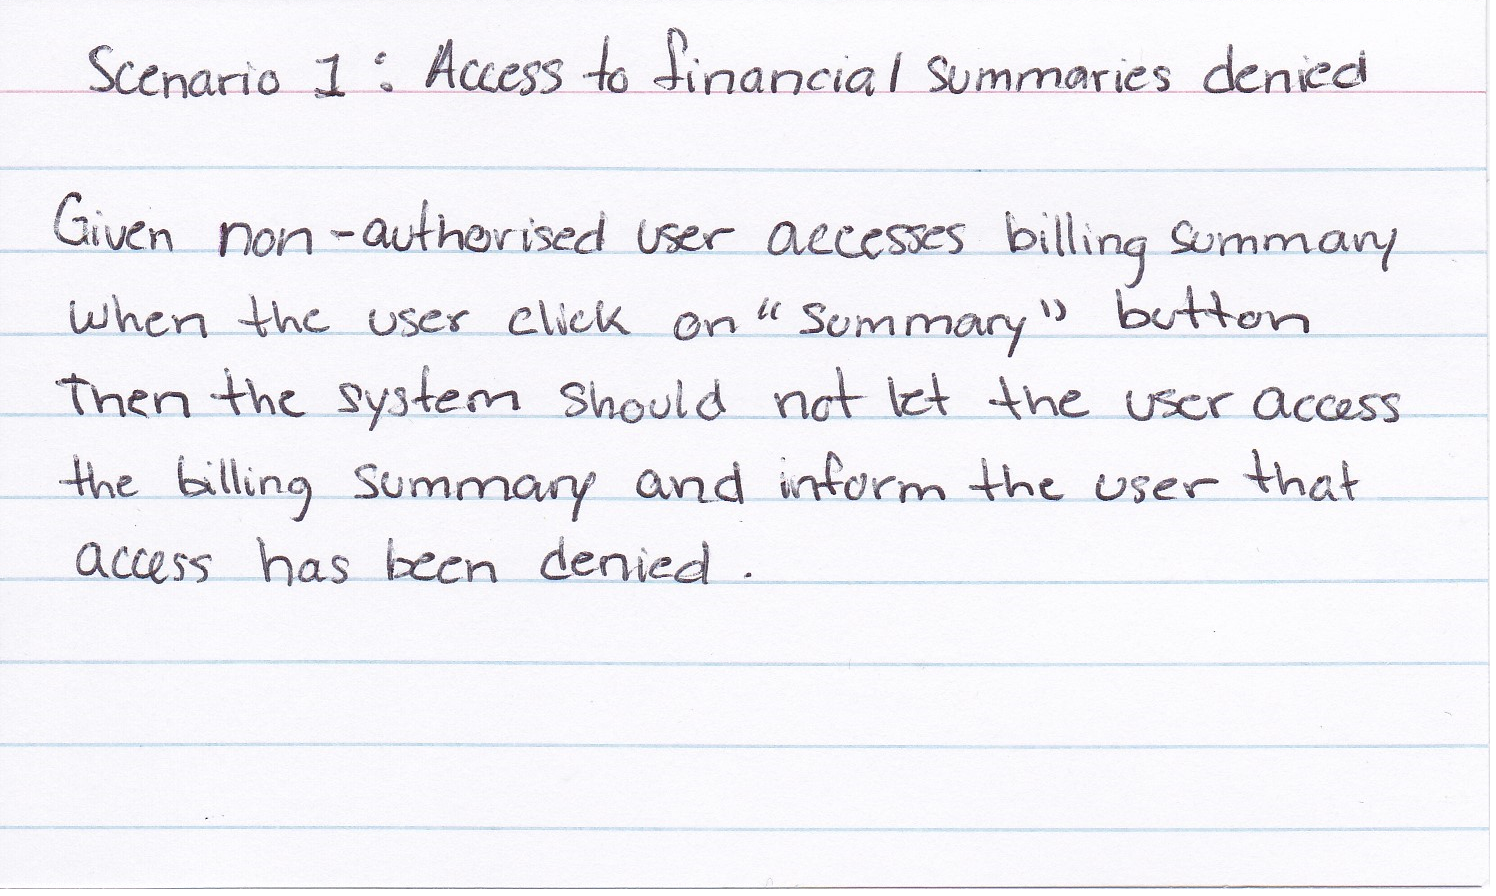 Scenario 1: Access to financial summaries denied
Given non-authorised user accesses billing summary
When the user click on "Summary" button
Then the system should not let the user access
the billing summary and inform the user that
access has been denied.